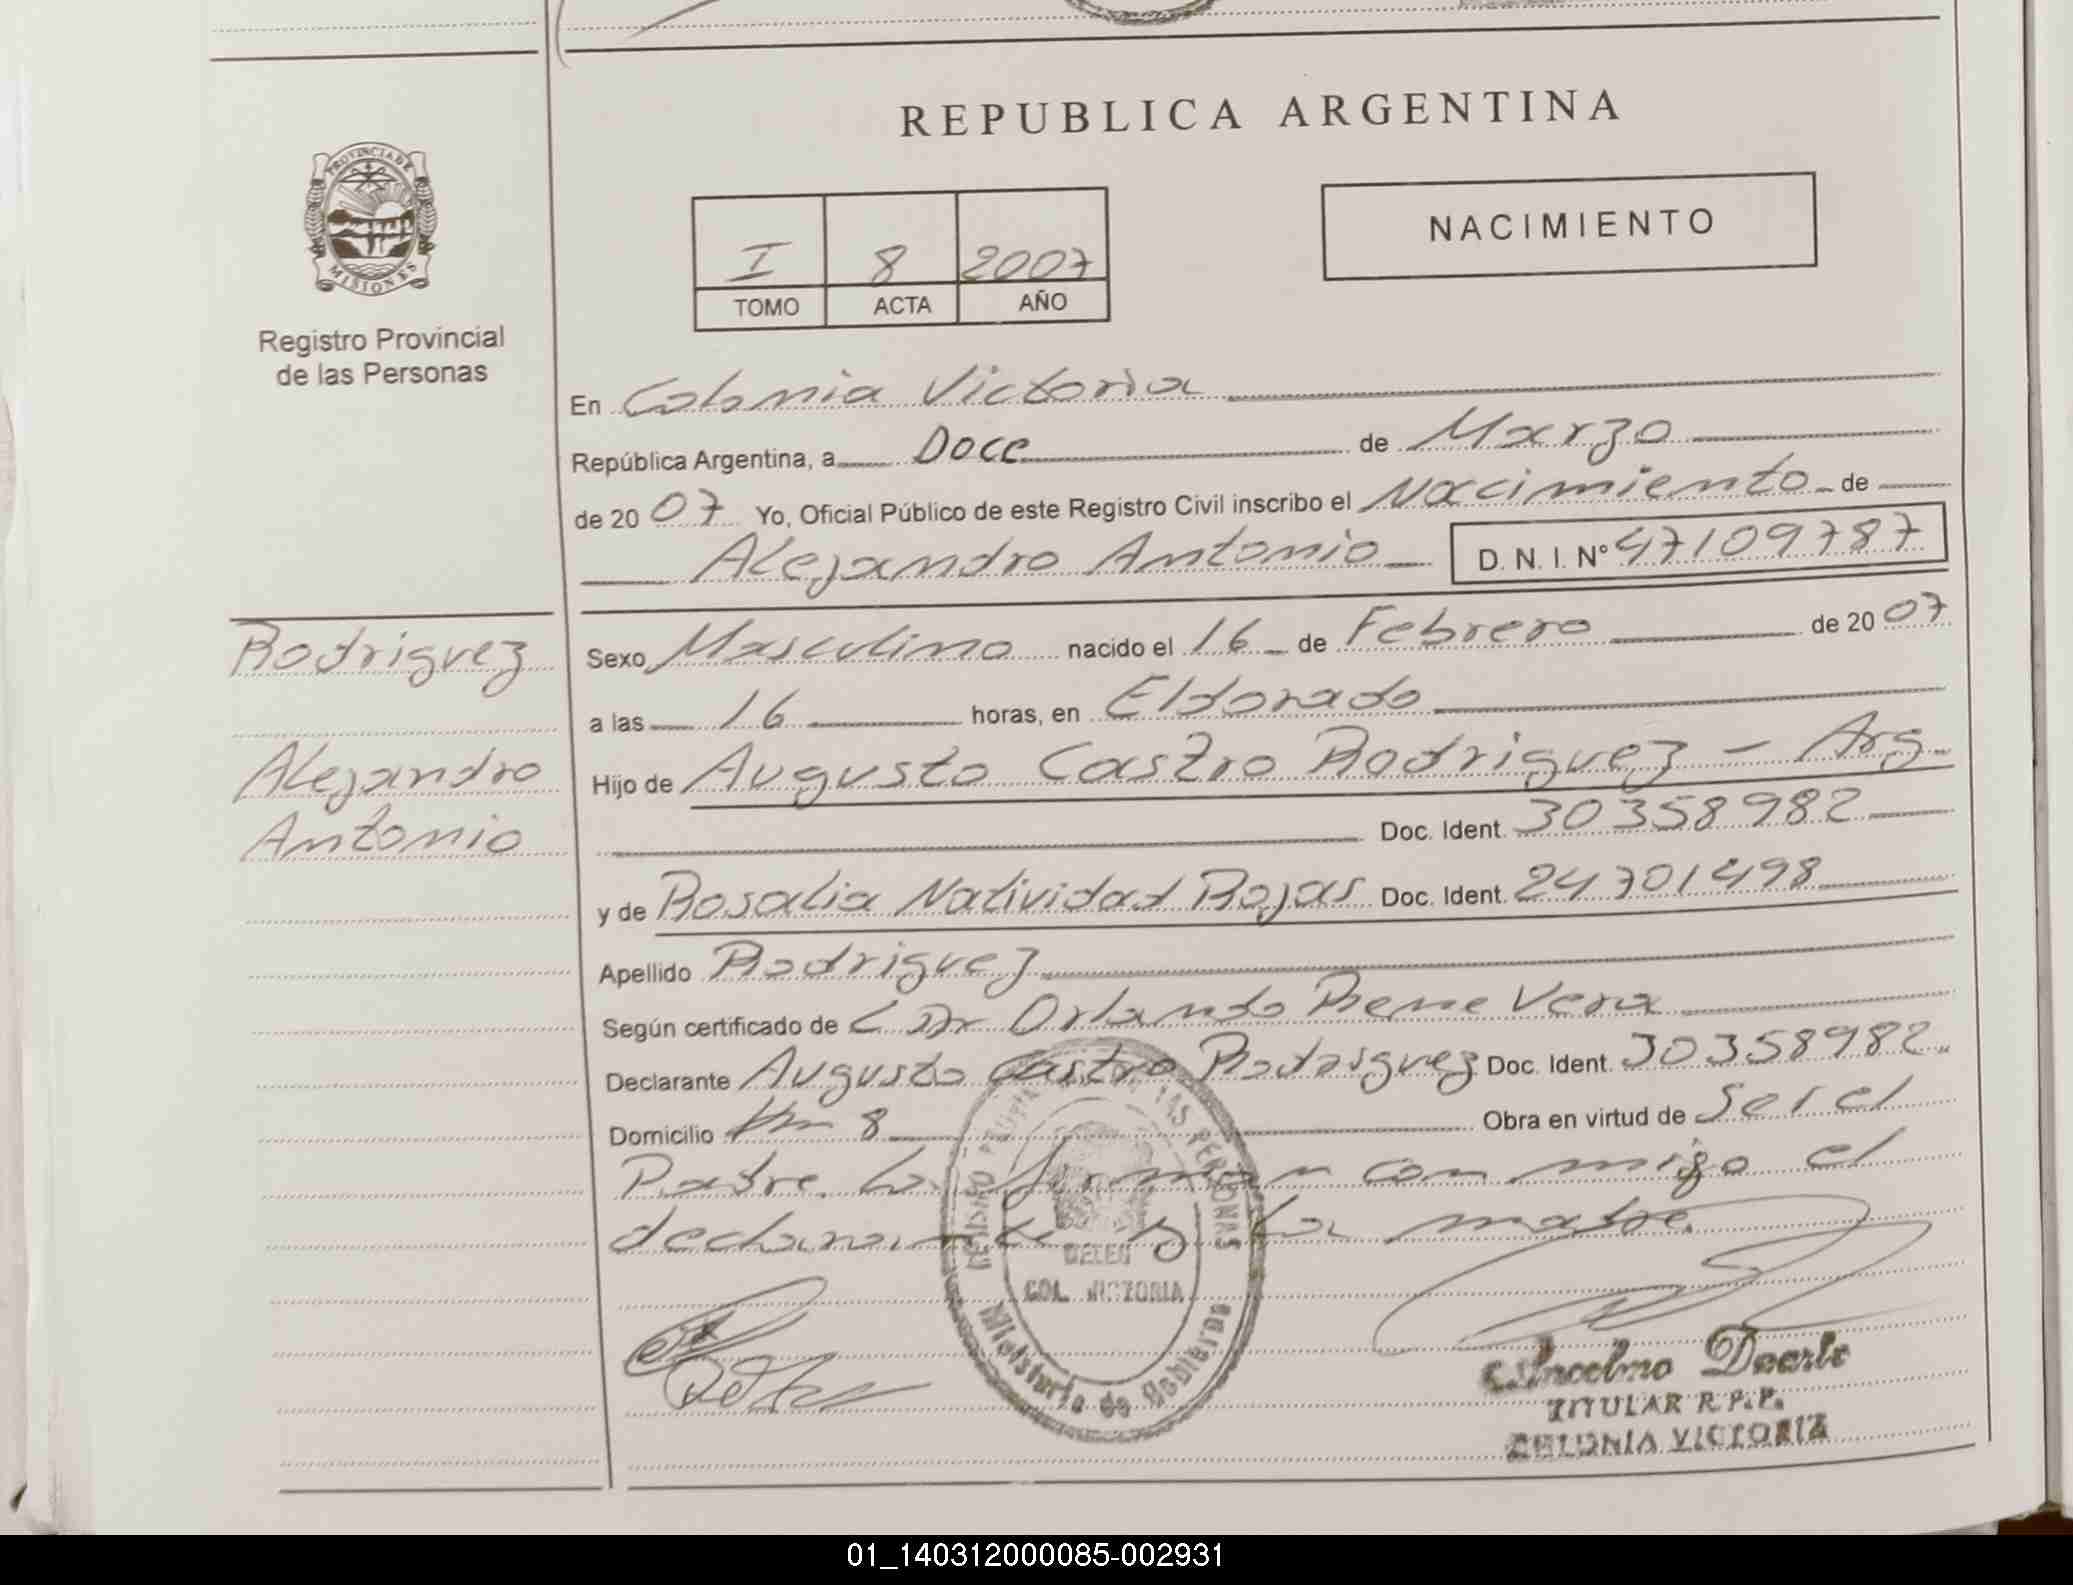 PROVINCIA DE
MISIONES
Registro Provincial
de las Personas
Rodriguez
Alejandro
Antonio
REPUBLICA ARGENTINA
I 8 2007
TOMO ACTA AÑO
NACIMIENTO
En Colonia Victoria
República Argentina, a Doce de Marzo
de 2007 Yo, Oficial Público de este Registro Civil inscribo el Nacimiento de
Alejandro Antonio D. N. I. Nº 47109787
Sexo Masculino nacido el 16 de Febrero de 2007
a las 16 horas, en Eldorado
Hijo de Augusto Castro Rodriguez - Arg.
Doc. Ident. 30358982
y de Rosalia Natividad Rojas Doc. Ident. 24701498
Apellido Rodriguez
Según certificado de Dr Orlando Rene Vera
Declarante Augusto Castro Rodriguez Doc. Ident. 30358982
Domicilio Km 8 Obra en virtud de Ser el
Padre. Lo firman con migo el
declarante y la madre.
DELEG
COL. VICTORIA
Ministerio de Gobierno
Duarte
TITULAR R.P.P.
COLONIA VICTORIA
01_140312000085-002931